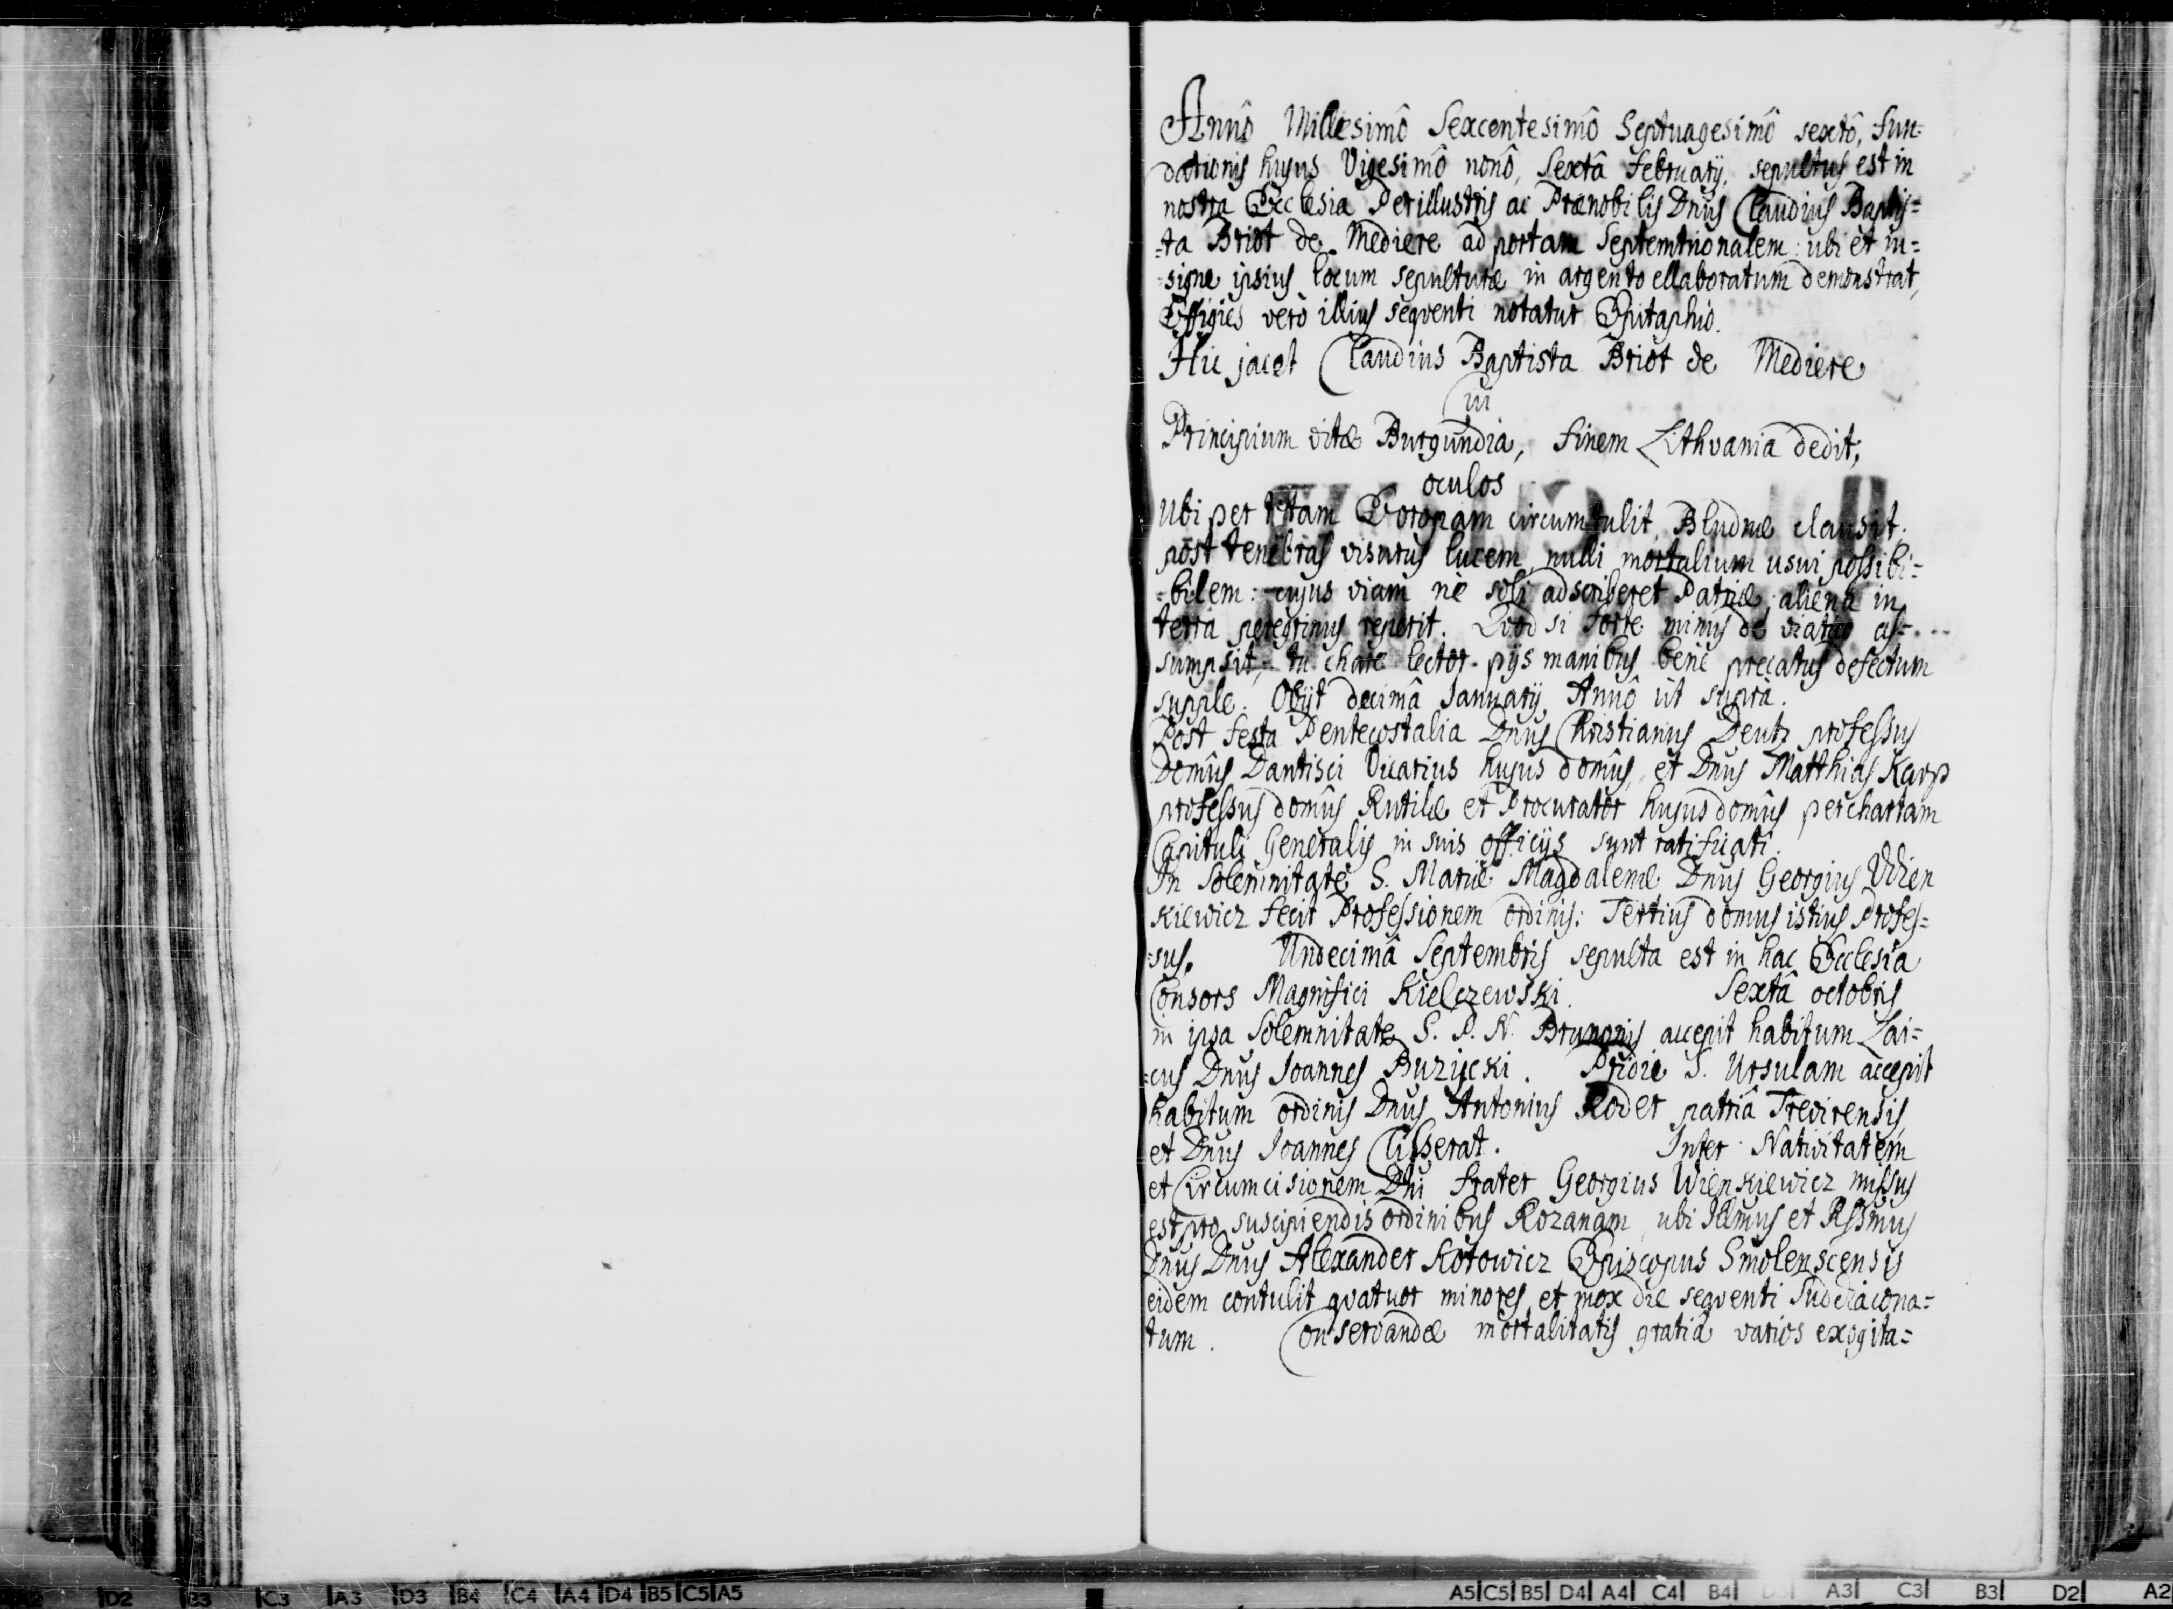 Annô Millesimô Sexcentesimô Septuagesimô sextô, fun=
dationis hujus Vigesimô nonô, Sextâ February, sepultus est in
nostra Ecclesia Perillustris ac Prænobilis Dnus Claudius Baptis=
=ta Briot de Mediere ad portam Septemtrionalem: ubi et in=
=signe ipsius locum sepulturæ in argento ellaboratum demonstrat,
Effigies verò illius seqventi notatur Epitaphio.
Hic jacet Claudius Baptista Briot de Mediere
Cui
Principium vitæ Burgundia, finem Lithvania dedit;
oculos
Ubi per totam Evropam circumtulit, Bludnæ clausit.
post tenebras visurus lucem, nulli mortalium usui possibi=
=bilem: cujus viam nè soli adscriberet Patriæ, aliena in
terra peregrinus reperit. Qvod si forte minus de viatico as=
sumpsit, tu chare lector pijs manibus benè precatus defectum
supple. Obijt decimâ January, Annô ut suprà.
Post festa Pentecostalia Dnus Christianus Deutz professus
Domûs Dantisci Vicarius hujus domûs, et Dnus Matthias Karp
professus domûs Rutilæ et Procurator hujus domûs per chartam
Capituli Generalis in suis officijs sunt ratificati.
In solemnitate S. Mariæ Magdalenæ Dnus Georgius Wien
kiewicz fecit Professionem ordinis: Tertius domus istius Profes=
=sus. Undecimâ Septembris sepulta est in hac Ecclesia
Consors Magnifici Kielczewski. Sextâ octobris
in ipsa solemnitate S. P. N. Brunonis accepit habitum Lai=
=cus Dnus Joannes Buzycki. Pridie S. Ursulam accepit
habitum ordinis Dnus Antonius Roder patriâ Trevirensis,
et Dnus Joannes Clisserat. Inter Nativitatem
et Circumcisionem Dni frater Georgius Wienkiewicz missus
est pro suscipiendis ordinibus Rozanam, ubi Illmus et Rssmus
Dnus Dnus Alexander Kotowicz Episcopus Smolenscensis
eidem contulit qvatuor minores, et mox die seqventi Subdiacona=
tum. Conservandæ mortalitatis gratia varios exogita=
D2 B3 C3 A3 D3 B4 C4 A4 D4 B5 C5 A5
A5 C5 B5 D4 A4 C4 B4 A3 C3 B3 D2 A2